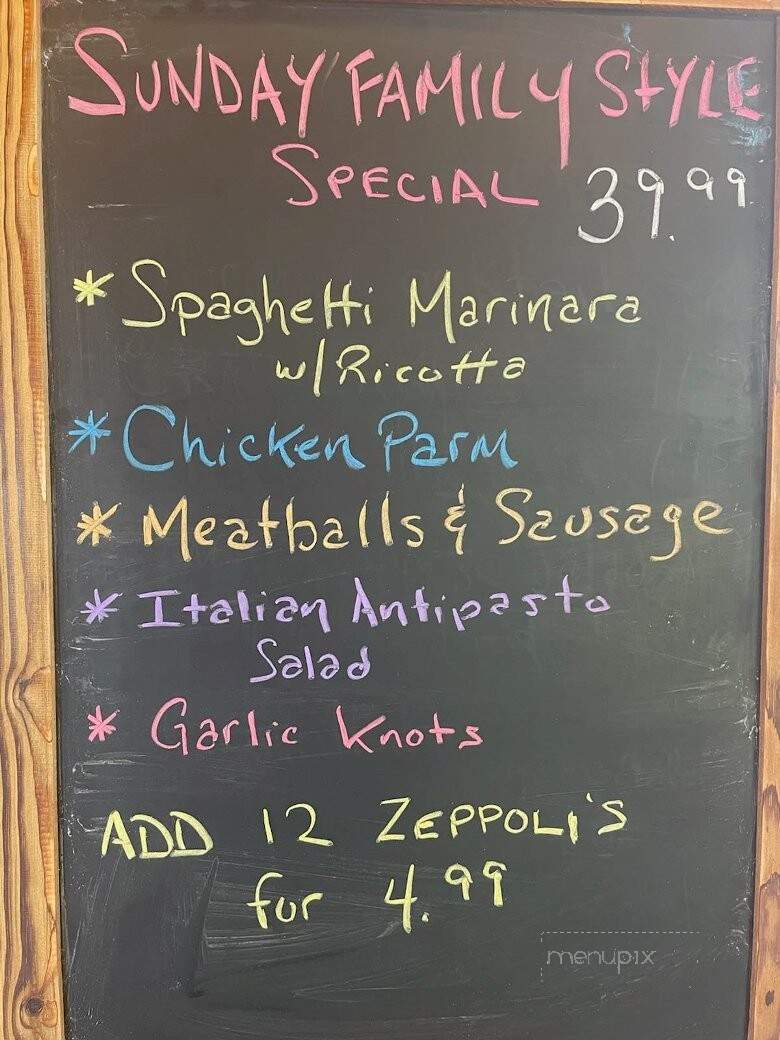 SUNDAY FAMILY STYLE
SPECIAL 39.99
* Spaghetti Marinara
w/Ricotta
* Chicken Parm
* Meatballs & Sausage
* Italian Antipasto
Salad
* Garlic Knots
ADD 12 ZEPPOLI'S
for 4.99
menupix